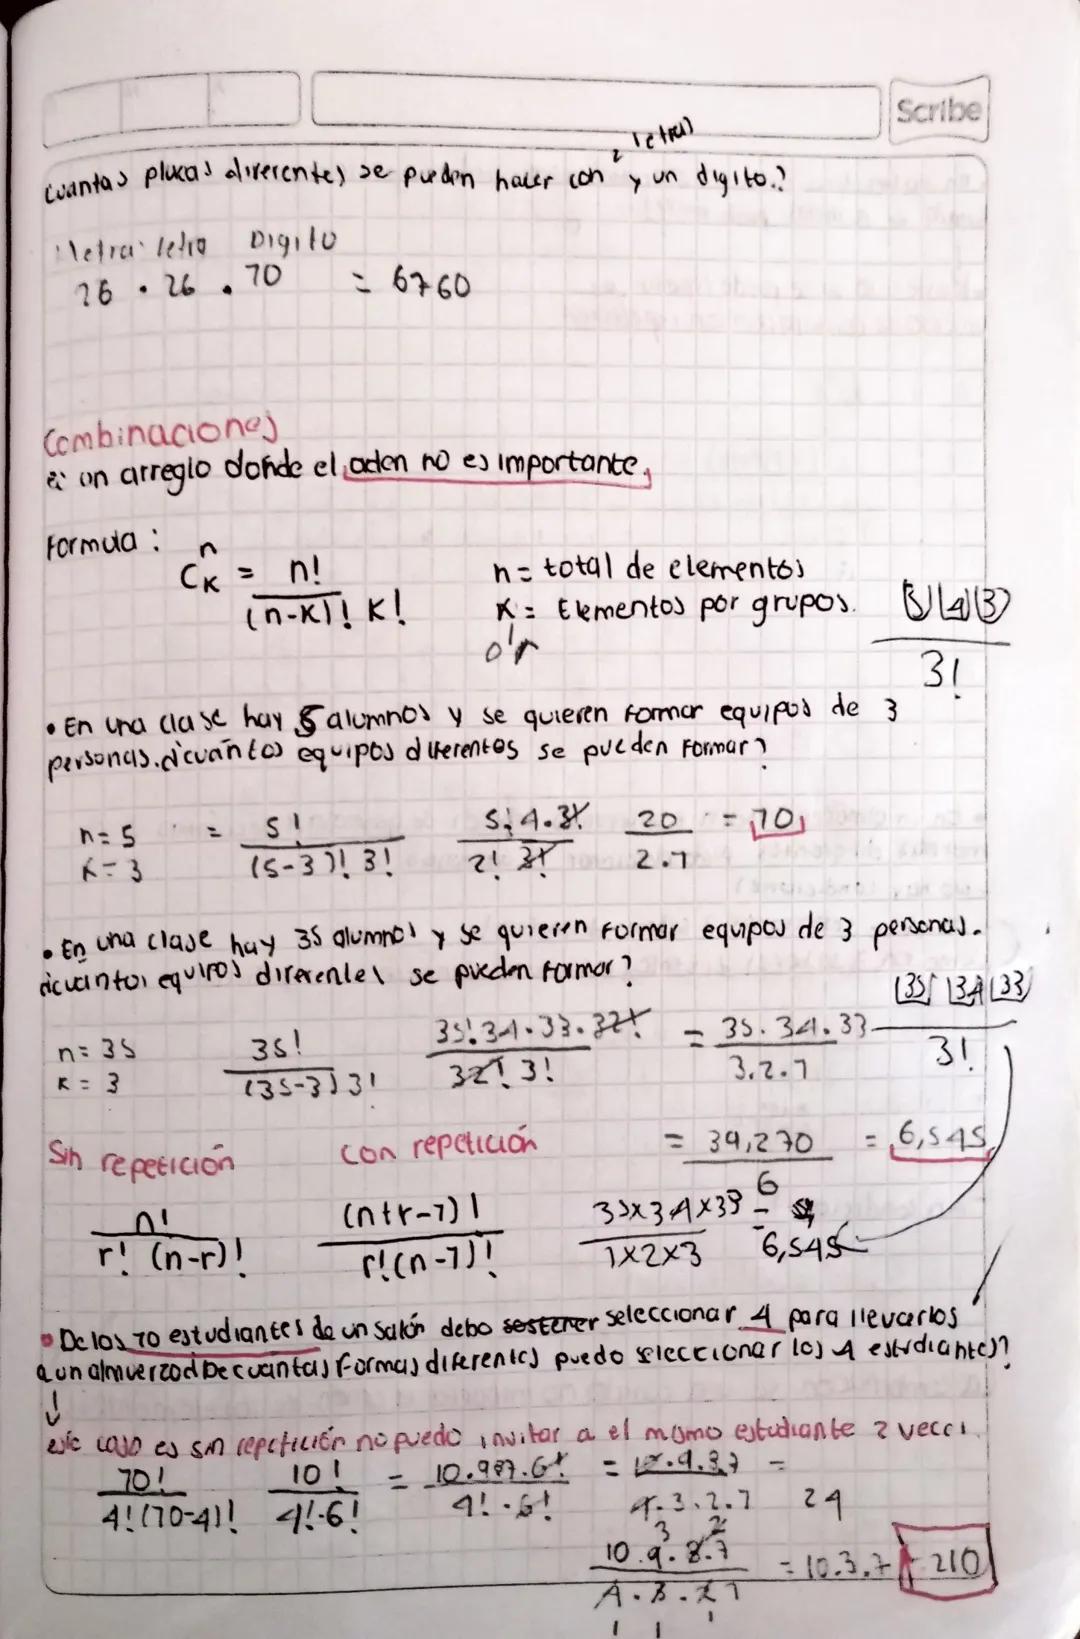 Scribe
2 letras
Cuantas placas diferentes se pueden hacer con y un digito.?
letra letra Digito
26 . 26 . 10 = 6760
Combinaciones
es un arreglo donde el orden no es importante.
Formula :
C n K = n! / (n-K)! K!
n = total de elementos
K = Elementos por grupos.
o r
5 4 3 / 3!
• En una clase hay 5 alumnos y se quieren formar equipos de 3
personas. ¿cuántos equipos diferentes se pueden formar?
n = 5
K = 3
= 5! / (5-3)! 3! 5.4.3! / 2! 3! 20 / 2.1 = 10
• En una clase hay 35 alumnos y se quieren formar equipos de 3 personas.
¿cuántos equipos diferentes se pueden formar?
35 34 33 / 3!
n = 35
K = 3
35! / (35-3) 3! 35!34.33.32! / 32! 3! = 35.34.33 / 3.2.1
= 39,270 / 6 = 6,545
Sin repetición con repetición
n! / r! (n-r)! (n+r-1)! / r!(n-1)! 35x34x33 / 1x2x3 = 6,545
• De los 10 estudiantes de un salón debo seleccionar 4 para llevarlos
a un almuerzo ¿De cuantas formas diferentes puedo seleccionar los 4 estudiantes?
este caso es sin repetición no puedo invitar a el mismo estudiante 2 veces.
10! / 4!(10-4)! 10! / 4!.6! = 10.987.6! / 4!.6! = 10.9.8.7 / 4.3.2.1 = 24
10.9.8.7 / 4.3.2 1 = 10.3.7 = 210